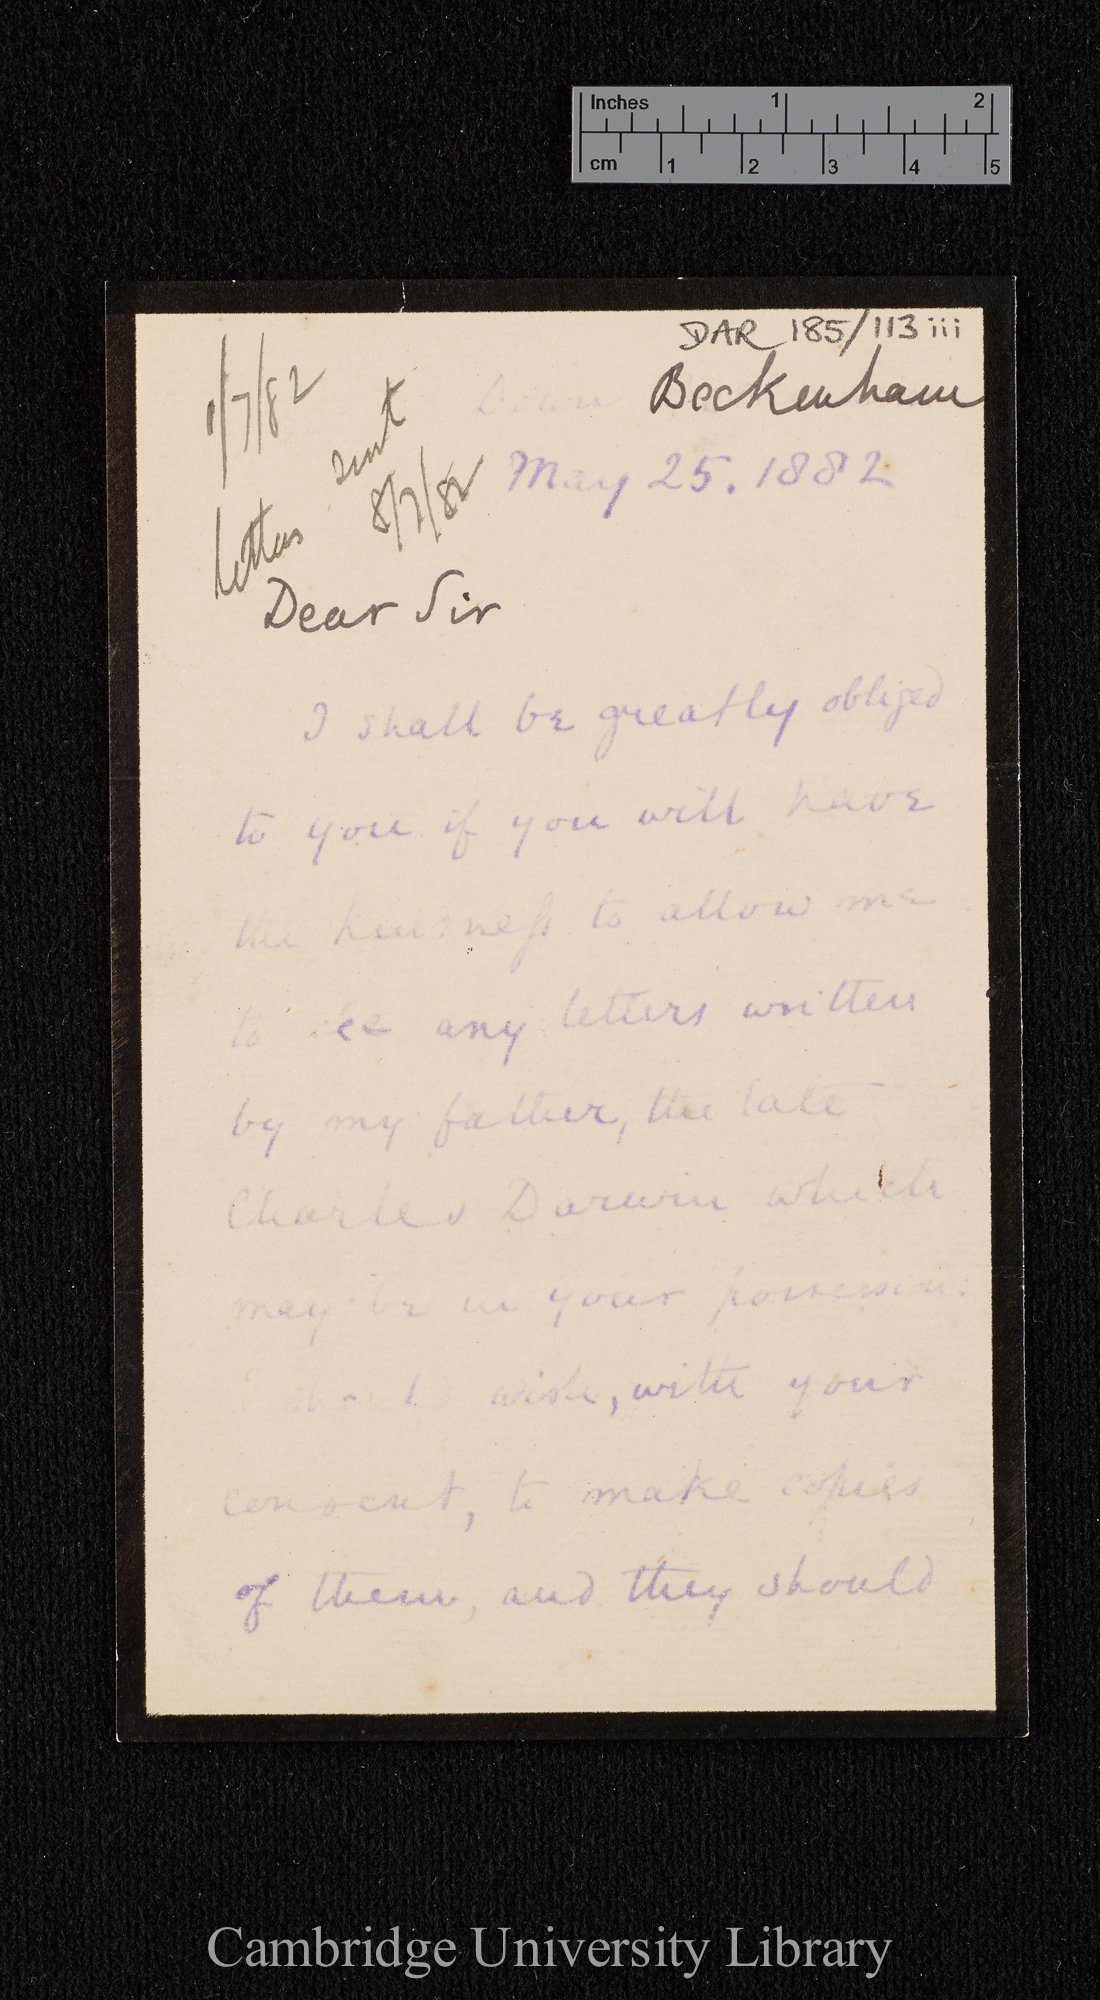 Inches 1 2
cm 1 2 3 4 5
DAR 185/113 iii
1/7/82
Down Beckenham
sent
May 25. 1882
8/7/82
letters
Dear Sir
I shall be greatly obliged
to you if you will have
the kindness to allow me
to see any letters written
by my father, the late
Charles Darwin which
may be in your possession.
I should wish, with your
consent, to make copies
of them, and they should
Cambridge University Library